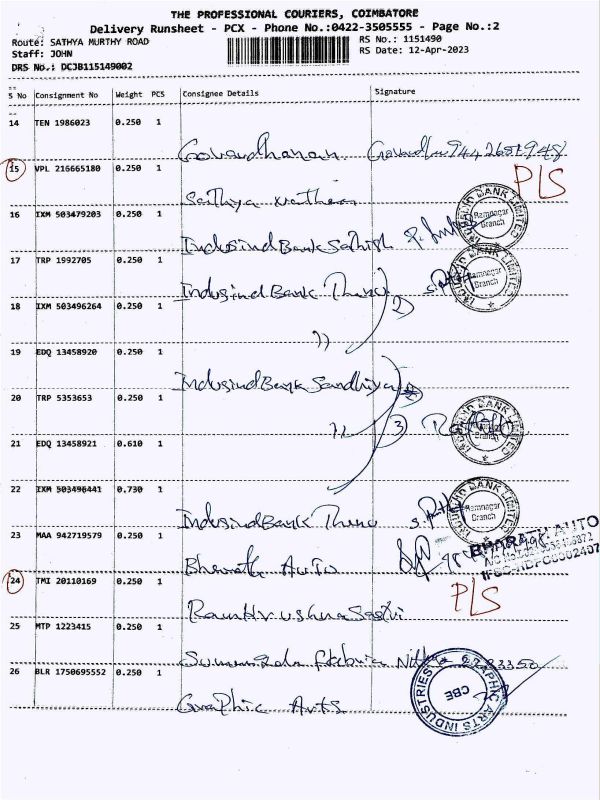 THE PROFESSIONAL COURIERS, COIMBATORE
Delivery Runsheet - PCX - Phone No.:0422-3505555 - Page No.:2
Route: SATHYA MURTHY ROAD
RS No.: 1151490
Staff: JOHN
RS Date: 12-Apr-2023
DRS No.: DCJB115149002
S No Consignment No Weight PCS Consignee Details Signature
14 TEN 1986023 0.250 1
Govardhanan
15 VPL 216665180 0.250 1
P/S
Sathya
16 IXM 503479203 0.250 1
IndusindBank Sathish
INDUSIND BANK LIMITED
Ramnagar
Branch
17 TRP 1992705 0.250 1
IndusindBank
INDUSIND BANK LIMITED
Ramnagar
Branch
18 IXM 503496264 0.250 1
2)
11
19 EDQ 13458920 0.250 1
IndusindBank Sandhiya
20 TRP 5353653 0.250 1
11
3)
INDUSIND BANK LIMITED
21 EDQ 13458921 0.610 1
22 IXM 503496441 0.730 1
IndusindBank
INDUSIND BANK LIMITED
Ramnagar
Branch
23 MAA 942719579 0.250 1
Bharath Auto
BHARATH AUTO
24 TMI 20110169 0.250 1
P/S
Ramkrushna Sastri
25 MTP 1223415 0.250 1
26 BLR 1750695552 0.250 1
Graphic Arts
GRAPHIC ARTS INDUSTRIES
CBE